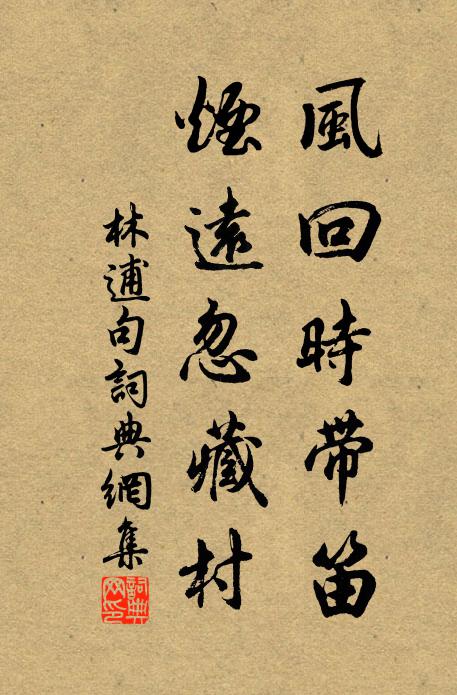 風回時帶笛
煙遠忽藏村
林逋句詞典網集
詞典網印